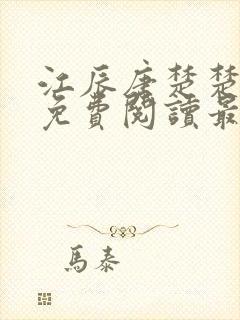 江辰唐楚楚
免費閱讀最
馬泰